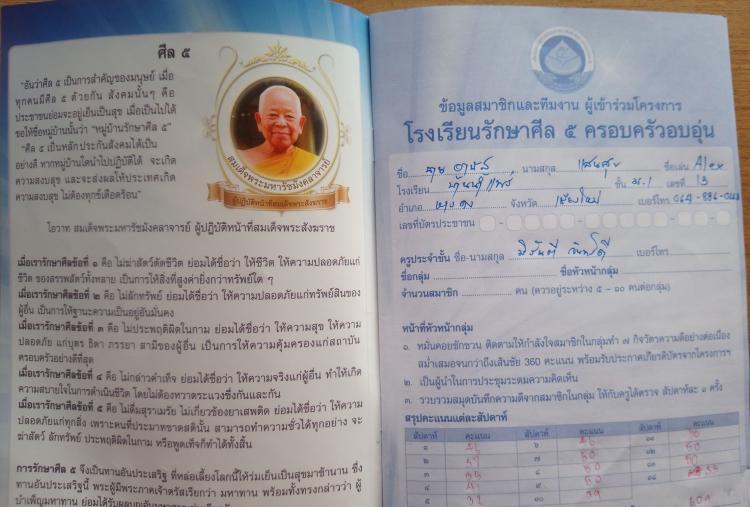 ศีล ๕
"อันว่าศีล ๕ เป็นการสำคัญของมนุษย์ เมื่อ
ทุกคนมีศีล ๕ ด้วยกัน สังคมนั้นๆ คือ
ประชาชนย่อมจะอยู่เย็นเป็นสุข เมื่อเป็นไปได้
ขอให้ชื่อหมู่บ้านนั้นว่า "หมู่บ้านรักษาศีล ๕"
"ศีล ๕ เป็นหลักประกันสังคมได้เป็น
อย่างดี หากหมู่บ้านใดนำไปปฏิบัติได้ จะเกิด
ความสงบสุข และจะส่งผลให้ประเทศเกิด
ความสงบสุข ไม่ต้องทุกข์เดือดร้อน"
สมเด็จพระมหารัชมังคลาจารย์
ผู้ปฏิบัติหน้าที่สมเด็จพระสังฆราช
โอวาท สมเด็จพระมหารัชมังคลาจารย์ ผู้ปฏิบัติหน้าที่สมเด็จพระสังฆราช
เมื่อเรารักษาศีลข้อที่ ๑ คือ ไม่ฆ่าสัตว์ตัดชีวิต ย่อมได้ชื่อว่า ให้ชีวิต ให้ความปลอดภัยแก่
ชีวิต ของสรรพสัตว์ทั้งหลาย เป็นการให้สิ่งที่สูงค่ายิ่งกว่าทรัพย์ใด ๆ
เมื่อเรารักษาศีลข้อที่ ๒ คือ ไม่ลักทรัพย์ ย่อมได้ชื่อว่า ให้ความปลอดภัยแก่ทรัพย์สินของ
ผู้อื่น เป็นการให้ฐานะความเป็นอยู่อันมั่นคง
เมื่อเรารักษาศีลข้อที่ ๓ คือ ไม่ประพฤติผิดในกาม ย่อมได้ชื่อว่า ให้ความสุข ให้ความ
ปลอดภัย แก่บุตร ธิดา ภรรยา สามีของผู้อื่น เป็นการให้ความคุ้มครองแก่สถาบัน
ครอบครัวอย่างดีที่สุด
เมื่อเรารักษาศีลข้อที่ ๔ คือ ไม่กล่าวคำเท็จ ย่อมได้ชื่อว่า ให้ความจริงแก่ผู้อื่น ทำให้เกิด
ความสบายใจในการดำเนินชีวิต โดยไม่ต้องหวาดระแวงซึ่งกันและกัน
เมื่อเรารักษาศีลข้อที่ ๕ คือ ไม่ดื่มสุราเมรัย ไม่เกี่ยวข้องยาเสพติด ย่อมได้ชื่อว่า ให้ความ
ปลอดภัยแก่ทุกสิ่ง เพราะคนที่ประมาทขาดสตินั้น สามารถทำความชั่วได้ทุกอย่าง จะ
ฆ่าสัตว์ ลักทรัพย์ ประพฤติผิดในกาม หรือพูดเท็จก็ทำได้ทั้งสิ้น
การรักษาศีล ๕ จึงเป็นทานอันประเสริฐ ที่หล่อเลี้ยงโลกนี้ให้ร่มเย็นเป็นสุขมาช้านาน ซึ่ง
ทานอันประเสริฐนี้ พระผู้มีพระภาคเจ้าตรัสเรียกว่า มหาทาน พร้อมทั้งทรงกล่าวว่า ผู้
ข้อมูลสมาชิกและทีมงาน ผู้เข้าร่วมโครงการ
โรงเรียนรักษาศีล ๕ ครอบครัวอบอุ่น
ชื่อ นามสกุล แสนสุข ชื่อเล่น Alex
โรงเรียน ชั้น ม.1 เลขที่ 13
อำเภอ หางดง จังหวัด เชียงใหม่ เบอร์โทร
เลขที่บัตรประชาชน
ครูประจำชั้น ชื่อ-นามสกุล เบอร์โทร
ชื่อกลุ่ม ชื่อหัวหน้ากลุ่ม
จำนวนสมาชิก คน (ควรอยู่ระหว่าง ๕ – ๑๐ คนต่อกลุ่ม)
หน้าที่หัวหน้ากลุ่ม
๑. หมั่นคอยชักชวน ติดตามให้กำลังใจสมาชิกในกลุ่มทำ ๗ กิจวัตรความดีอย่างต่อเนื่อง
สม่ำเสมอจนกว่าถึงเส้นชัย 360 คะแนน พร้อมรับประกาศเกียรติบัตรจากโครงการฯ
๒. เป็นผู้นำในการประชุมระดมความคิดเห็น
๓. รวบรวมสมุดบันทึกความดีจากสมาชิกในกลุ่ม ให้กับครูได้ตรวจ สัปดาห์ละ ๑ ครั้ง
สรุปคะแนนแต่ละสัปดาห์
สัปดาห์ คะแนน สัปดาห์ คะแนน สัปดาห์ คะแนน
๑ ๖ ๑๑
๒ ๗ 50 ๑๒ 50
๓ ๘ 50 ๑๓
๔ ๙ 50 ๑๔
๕ ๑๐ 39